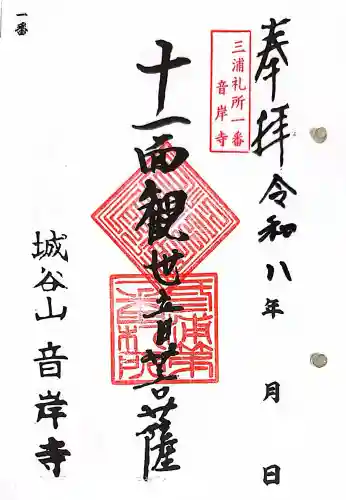 奉拝 令和八年 月 日
三浦札所一番
音岸寺
十一面観世音菩薩
城谷山 音岸寺
一番